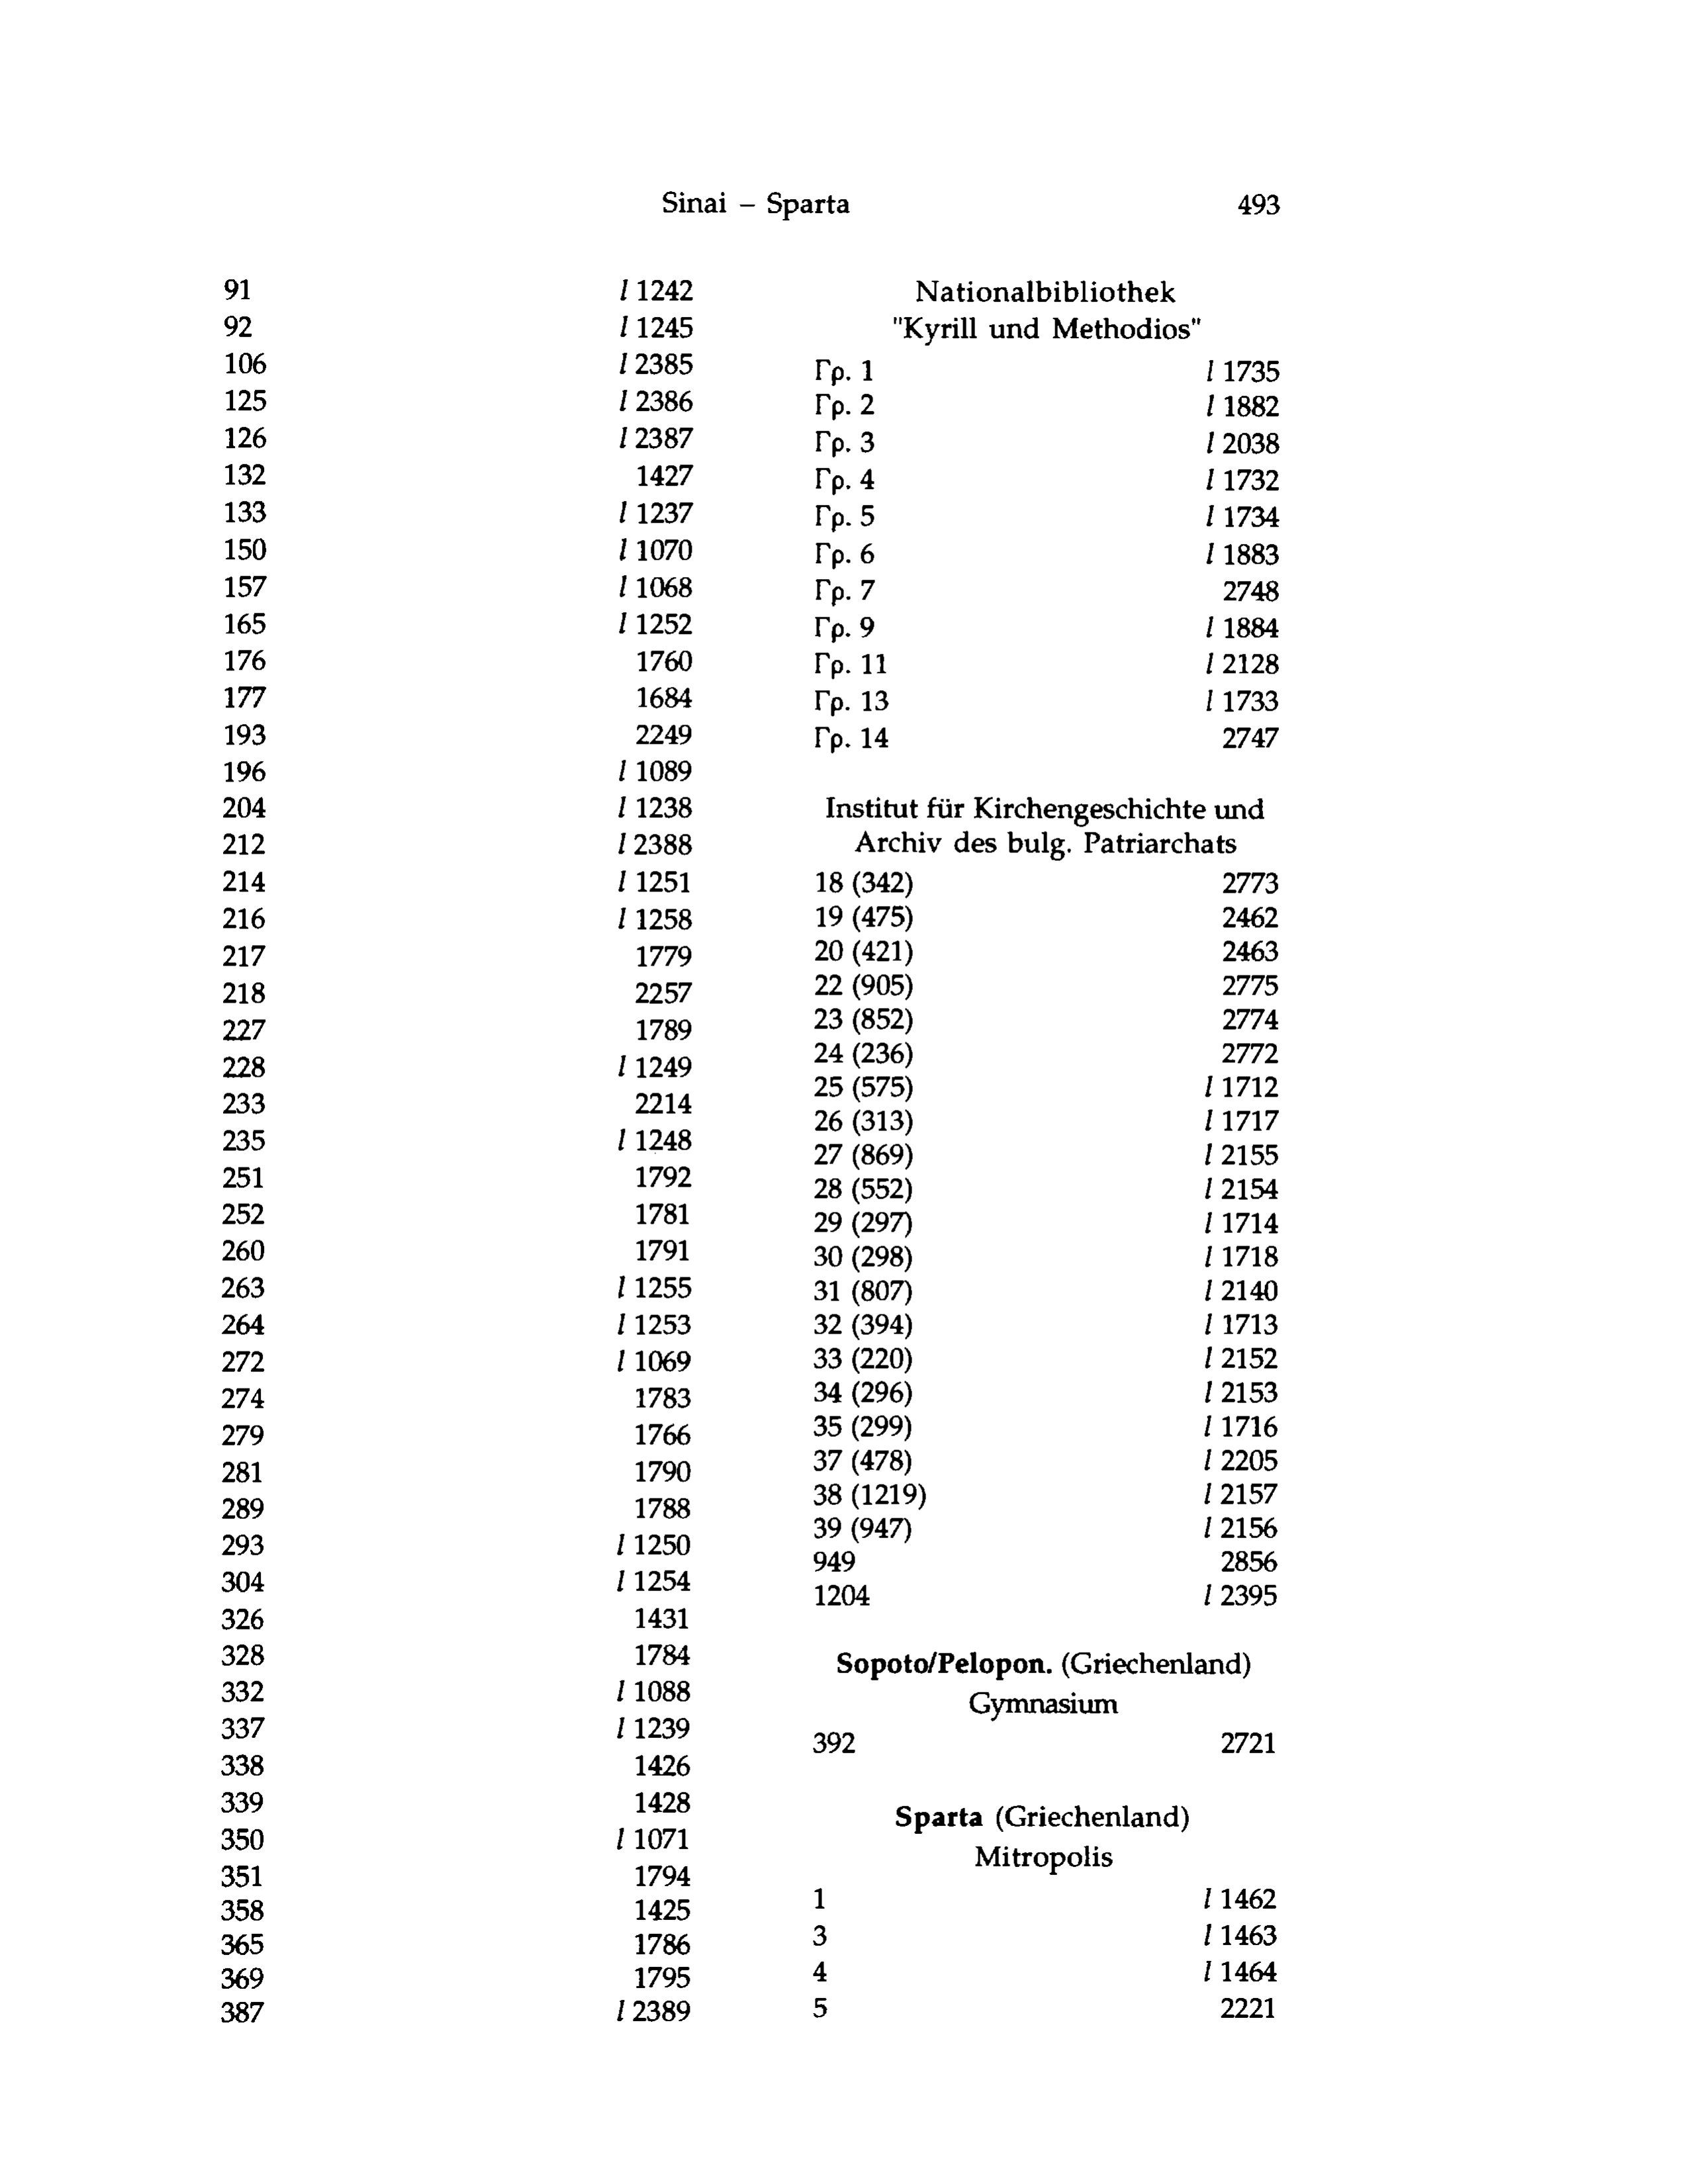 Sinai – Sparta 493
91 l 1242
92 l 1245
106 l 2385
125 l 2386
126 l 2387
132 1427
133 l 1237
150 l 1070
157 l 1068
165 l 1252
176 1760
177 1684
193 2249
196 l 1089
204 l 1238
212 l 2388
214 l 1251
216 l 1258
217 1779
218 2257
227 1789
228 l 1249
233 2214
235 l 1248
251 1792
252 1781
260 1791
263 l 1255
264 l 1253
272 l 1069
274 1783
279 1766
281 1790
289 1788
293 l 1250
304 l 1254
326 1431
328 1784
332 l 1088
337 l 1239
338 1426
339 1428
350 l 1071
351 1794
358 1425
365 1786
369 1795
387 l 2389
Nationalbibliothek
"Kyrill und Methodios"
Гр. 1 l 1735
Гр. 2 l 1882
Гр. 3 l 2038
Гр. 4 l 1732
Гр. 5 l 1734
Гр. 6 l 1883
Гр. 7 2748
Гр. 9 l 1884
Гр. 11 l 2128
Гр. 13 l 1733
Гр. 14 2747
Institut für Kirchengeschichte und
Archiv des bulg. Patriarchats
18 (342) 2773
19 (475) 2462
20 (421) 2463
22 (905) 2775
23 (852) 2774
24 (236) 2772
25 (575) l 1712
26 (313) l 1717
27 (869) l 2155
28 (552) l 2154
29 (297) l 1714
30 (298) l 1718
31 (807) l 2140
32 (394) l 1713
33 (220) l 2152
34 (296) l 2153
35 (299) l 1716
37 (478) l 2205
38 (1219) l 2157
39 (947) l 2156
949 2856
1204 l 2395
Sopoto/Pelopon. (Griechenland)
Gymnasium
392 2721
Sparta (Griechenland)
Mitropolis
1 l 1462
3 l 1463
4 l 1464
5 2221